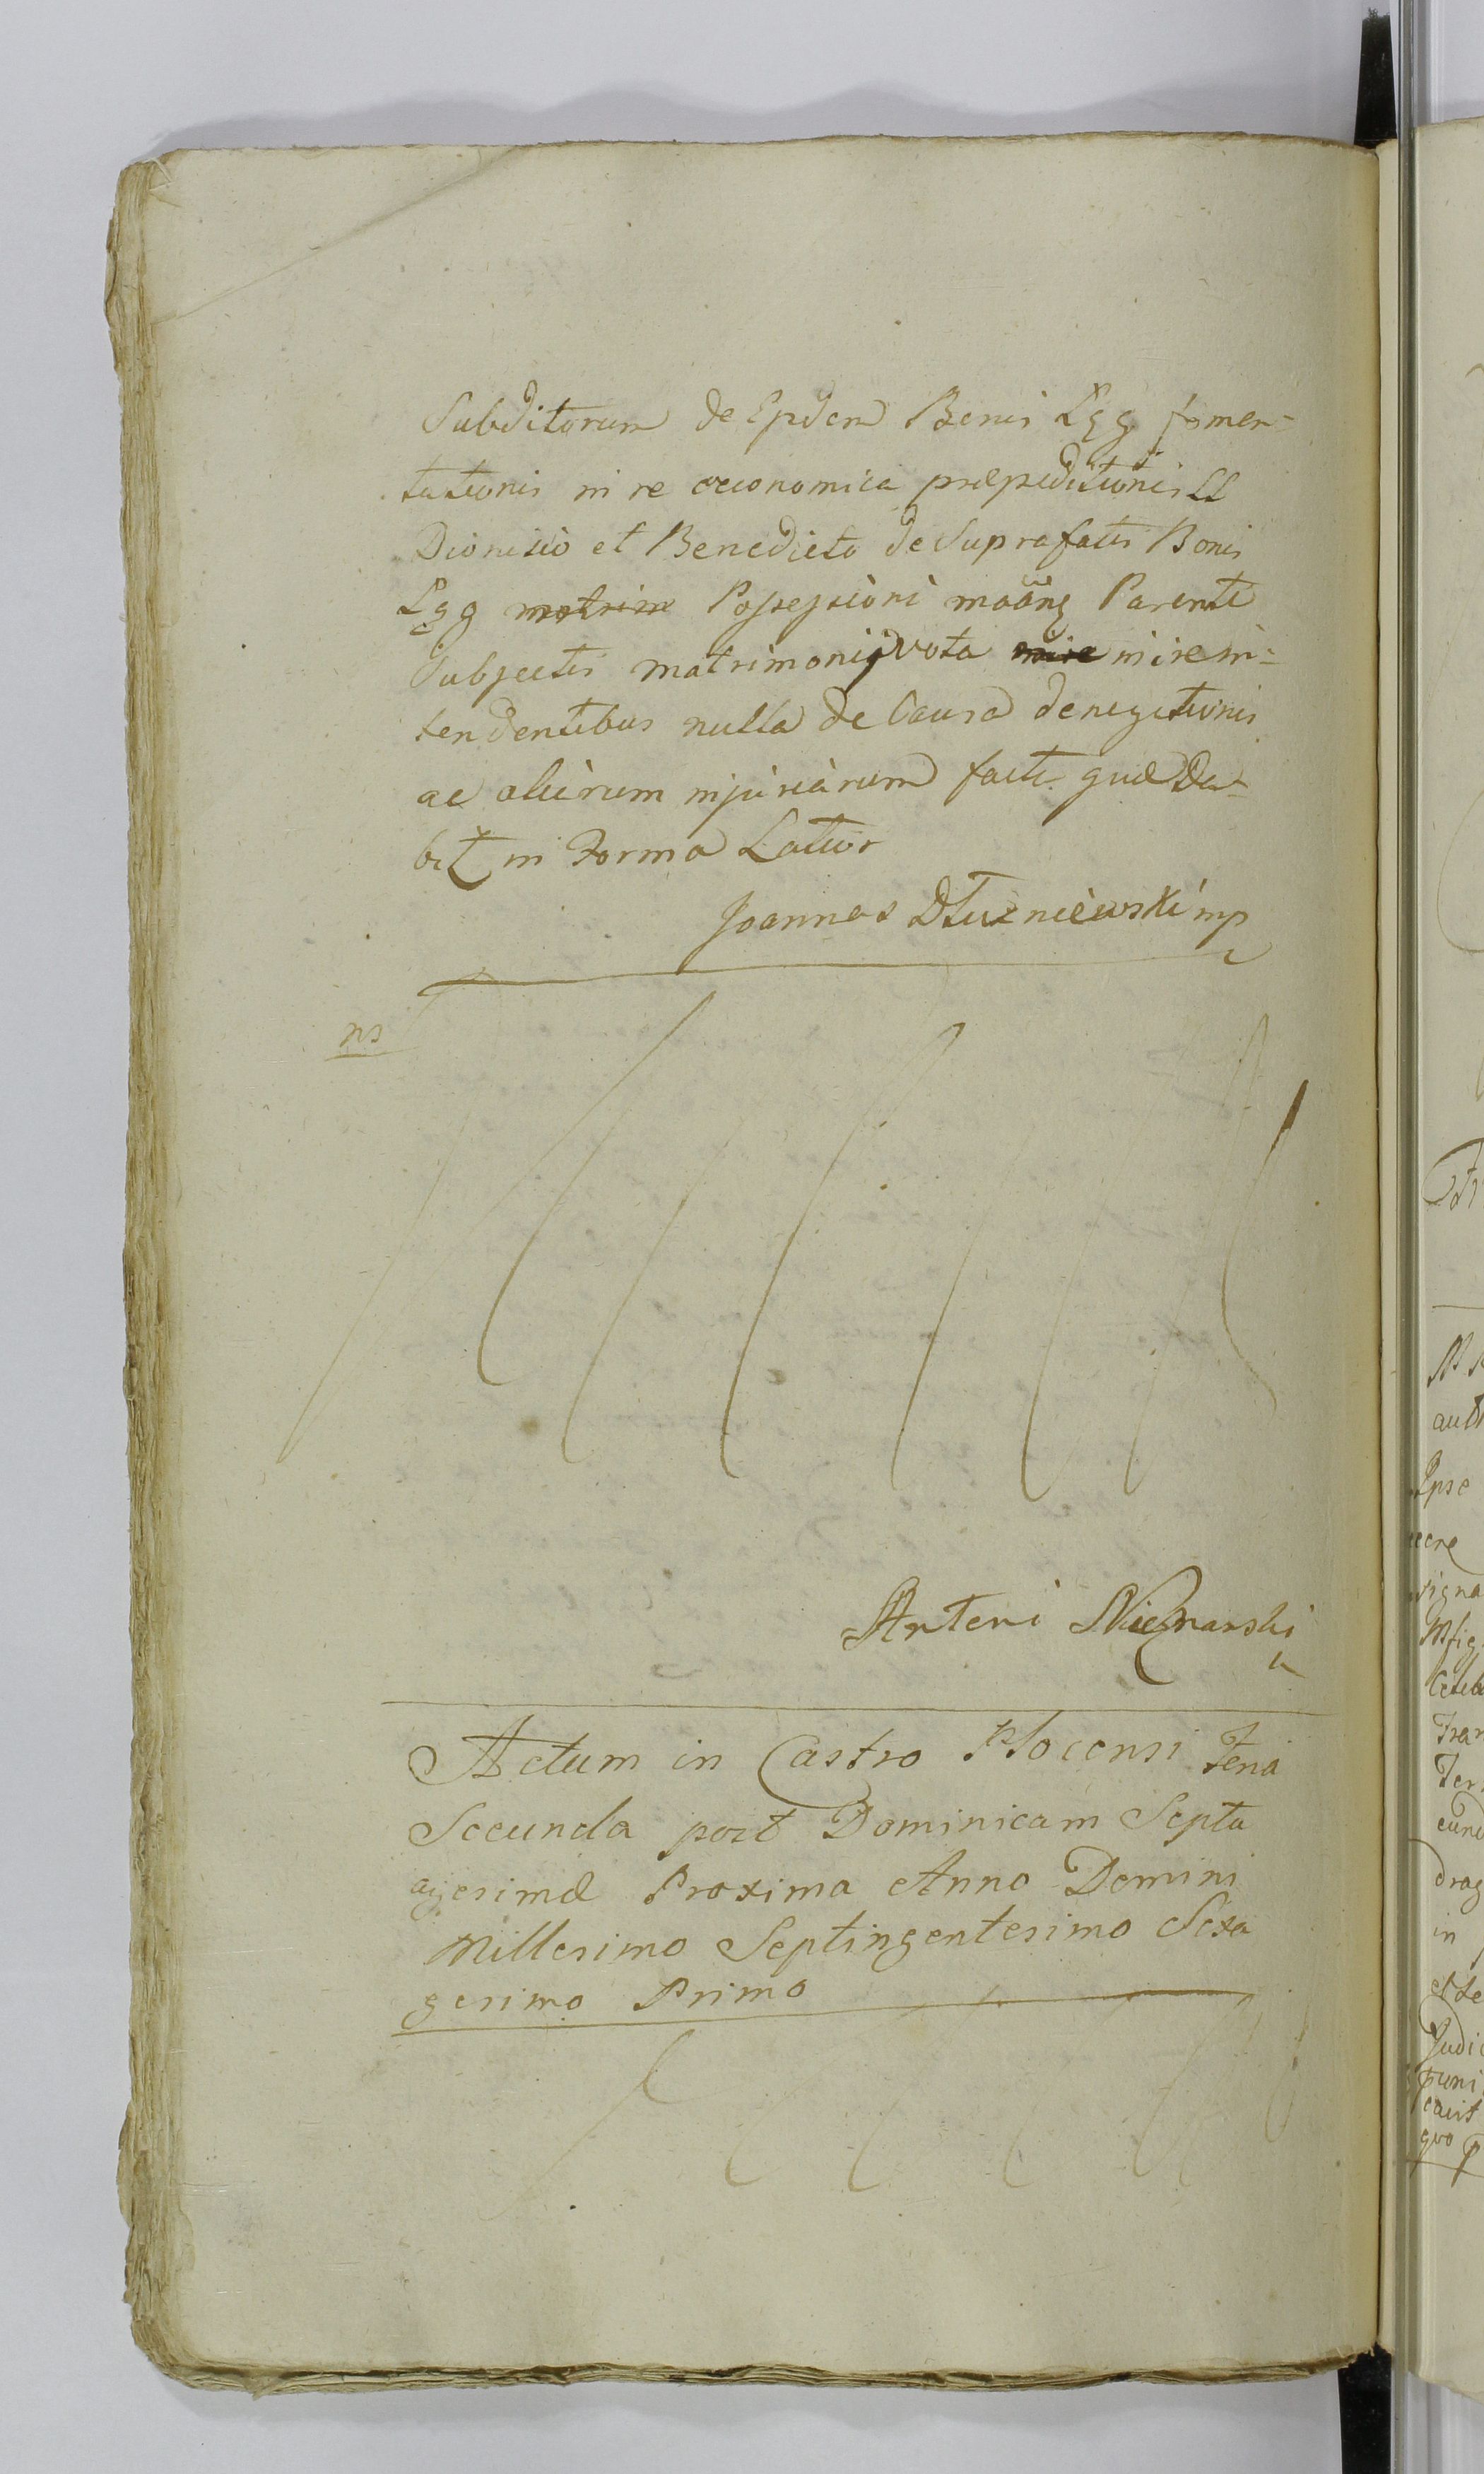 Subditorum de Ejusdem Bonis Łęg fomen=
tationis in re oeconomica praepeditionis LL
Dionisio et Benedicto de Suprafatis Bonis
Łęg Possessioni Parenti
Subjectis matrimonij vota inire in=
tendentibus nulla de Causa denegationis
ac aliarum injuriarum factis quae Da=
bit in Forma Latior
Joannes Dłuzniewski mp
ns
Arteri
Actum in Castro Plocensi Feria
Secunda post Dominicam Septu
agesimae Proxima Anno Domini
Millesimo Septingentesimo Sexa
gesimo Primo